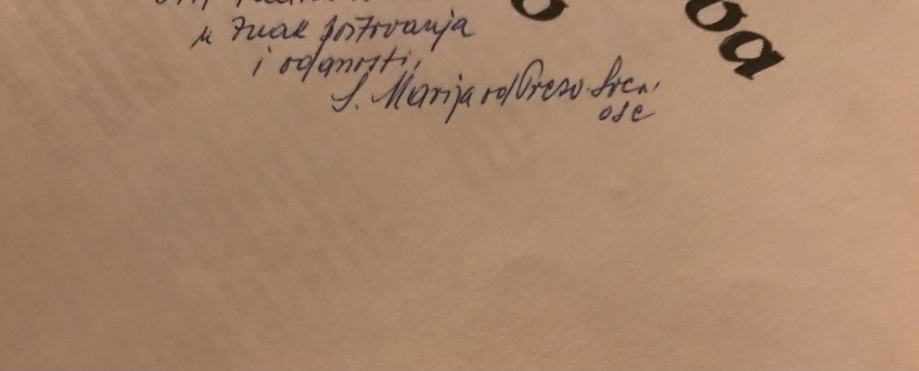 u znak poštovanja
i odanosti,
S. Marija od Presv. Srca,
OSC
oba